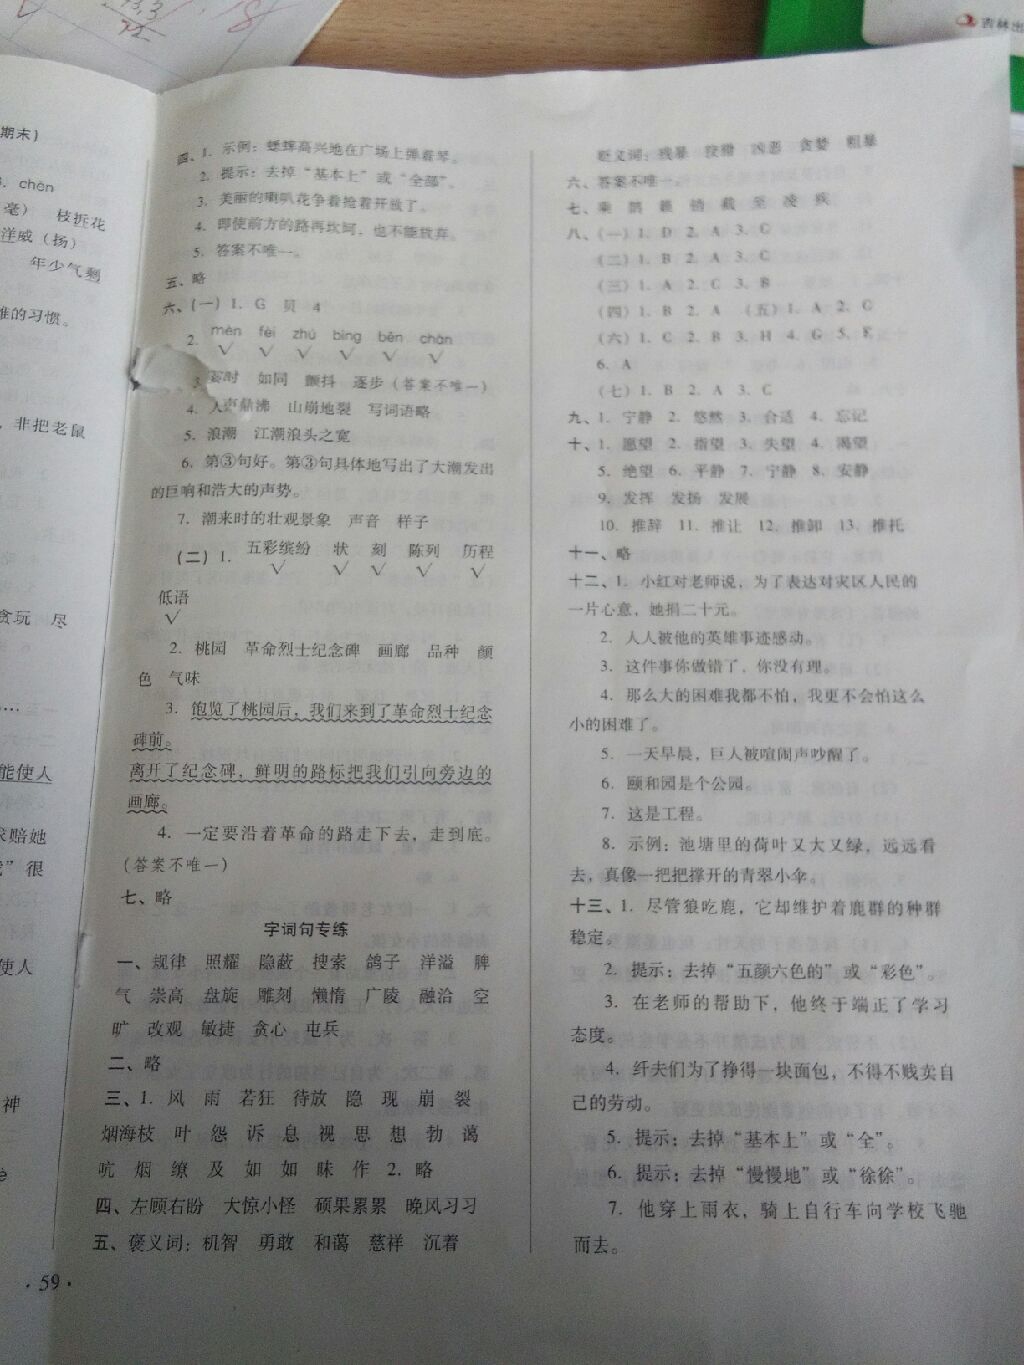 期末)
chēn
毫) 枝折花
洋威(扬)
年少气剩
难的习惯。
，非把老鼠
贪玩 尽
能使人
赔她
”很
使人
神
·59·
四、1. 示例：蟋蟀高兴地在广场上弹着琴。
2. 提示：去掉“基本上”或“全部”。
3. 美丽的喇叭花争着抢着开放了。
4. 即使前方的路再坎坷，也不能放弃。
5. 答案不唯一。
五、略
六、(一) 1. G 贝 4
2. mèn fèi zhú bìng bēn chàn
√ √ √ √ √ √
时 如同 颤抖 逐步(答案不唯一)
4. 人声鼎沸 山崩地裂 写词语略
5. 浪潮 江潮浪头之宽
6. 第③句好。第③句具体地写出了大潮发出
的巨响和浩大的声势。
7. 潮来时的壮观景象 声音 样子
(二) 1. 五彩缤纷 状 刻 陈列 历程
√ √ √ √ √
低语
√
2. 桃园 革命烈士纪念碑 画廊 品种 颜
色 气味
3. 饱览了桃园后，我们来到了革命烈士纪念
碑前。
离开了纪念碑，鲜明的路标把我们引向旁边的
画廊。
4. 一定要沿着革命的路走下去，走到底。
(答案不唯一)
七、略
字词句专练
一、规律 照耀 隐蔽 搜索 鸽子 洋溢 脾
气 崇高 盘旋 雕刻 懒惰 广陵 融洽 空
旷 改观 敏捷 贪心 屯兵
二、略
三、1. 风 雨 若狂 待放 隐 现 崩 裂
烟海枝 叶 怨 诉 息 视 思 想 勃 蔼
吭 烟 缭 及 如 如 昧 作 2. 略
四、左顾右盼 大惊小怪 硕果累累 晚风习习
五、褒义词：机智 勇敢 和蔼 慈祥 沉着
贬义词：残暴 狡猾 凶恶 贪婪 粗暴
六、答案不唯一。
七、乘 销 载 至 凌 疾
八、(一) 1. D 2. A 3. C
(二) 1. B 2. A 3. C
(三) 1. A 2. C 3. B
(四) 1. B 2. A (五) 1. A 2. C
(六) 1. C 2. B 3. H 4. G 5. E
6. A
(七) 1. B 2. A 3. C
九、1. 宁静 2. 悠然 3. 合适 4. 忘记
十、1. 愿望 2. 指望 3. 失望 4. 渴望
5. 绝望 6. 平静 7. 宁静 8. 安静
9. 发挥 发扬 发展
10. 推辞 11. 推让 12. 推卸 13. 推托
十一、略
十二、1. 小红对老师说，为了表达对灾区人民的
一片心意，她捐二十元。
2. 人人被他的英雄事迹感动。
3. 这件事你做错了，你没有理。
4. 那么大的困难我都不怕，我更不会怕这么
小的困难了。
5. 一天早晨，巨人被喧闹声吵醒了。
6. 颐和园是个公园。
7. 这是工程。
8. 示例：池塘里的荷叶又大又绿，远远看
去，真像一把把撑开的青翠小伞。
十三、1. 尽管狼吃鹿，它却维护着鹿群的种群
稳定。
2. 提示：去掉“五颜六色的”或“彩色”。
3. 在老师的帮助下，他终于端正了学习
态度。
4. 纤夫们为了挣得一块面包，不得不贱卖自
己的劳动。
5. 提示：去掉“基本上”或“全”。
6. 提示：去掉“慢慢地”或“徐徐”。
7. 他穿上雨衣，骑上自行车向学校飞驰
而去。
吉林出